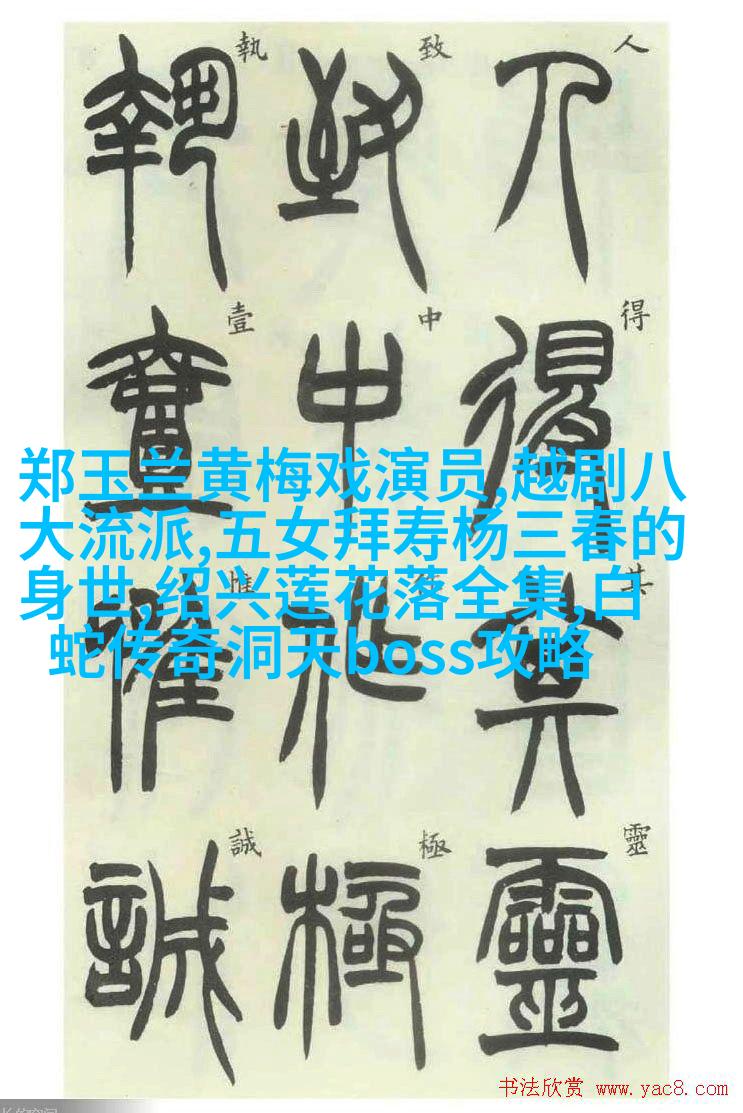 人得其靈
人得其靈
致中極
致中極
執壹惟誠
執壹惟誠
郑玉兰黄梅戏演员,越剧八
大流派,五女拜寿杨三春的
身世,绍兴莲花落全集,白
蛇传奇洞天boss攻略
书法欣赏 www.yac8.com